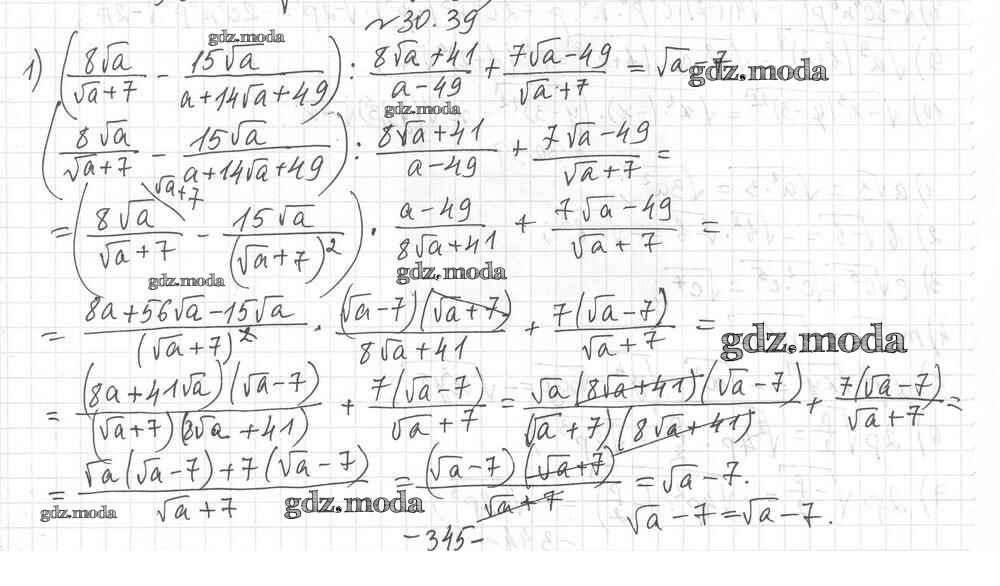 №30.39
gdz.moda
1) (8√a/(√a+7) - 15√a/(a+14√a+49)) : (8√a+41)/(a-49) + (7√a-49)/(√a+7) = √a-7
gdz.moda
gdz.moda
(8√a/(√a+7) - 15√a/(a+14√a+49)) : (8√a+41)/(a-49) + (7√a-49)/(√a+7) =
√a+7
= (8√a/(√a+7) - 15√a/(√a+7)²) · (a-49)/(8√a+41) + (7√a-49)/(√a+7) =
gdz.moda
gdz.moda
= (8a+56√a-15√a)/(√a+7)² · (√a-7)(√a+7)/(8√a+41) + 7(√a-7)/(√a+7) =
gdz.moda
= (8a+41√a)(√a-7)/((√a+7)(8√a+41)) + 7(√a-7)/(√a+7) = √a(8√a+41)(√a-7)/((√a+7)(8√a+41)) + 7(√a-7)/(√a+7) =
= (√a(√a-7)+7(√a-7))/(√a+7) = (√a-7)(√a+7)/(√a+7) = √a-7.
gdz.moda
gdz.moda
√a-7=√a-7.
-345-